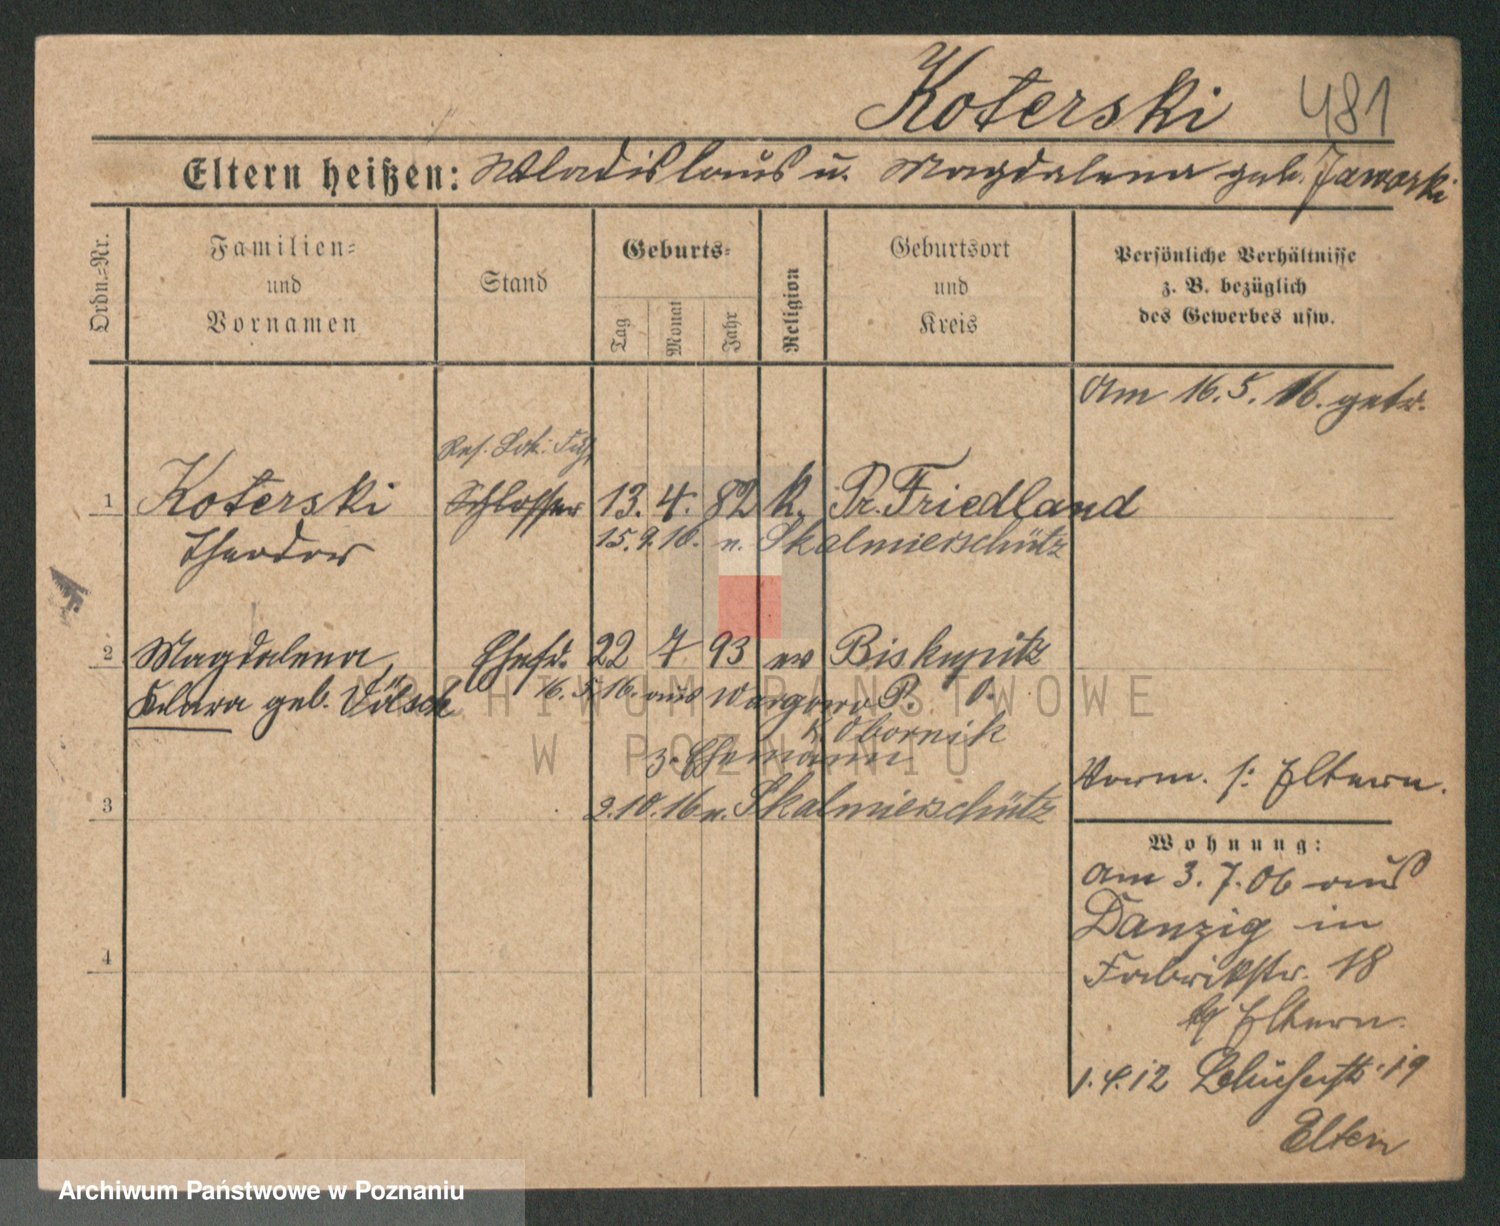 Koterski 481
Eltern heißen: Wladislaus u. Magdalena geb. Jaworski
Ordn.-Nr.
Familien-
und
Vornamen
Stand
Geburts-
Tag
Monat
Jahr
Religion
Geburtsort
und
Kreis
Persönliche Verhältnisse
z. B. bezüglich
des Gewerbes usw.
Am 16. 5. 16. getr.
Res. Lok.
1 Koterski Schlosser 13. 4. 82 k. Pr. Friedland
Theodor 15. 9. 10. n. Skalmierschütz
2 Magdalena, Ehefr. 22 7 93 ev Biskupitz
Klara geb. 16. 5. 16. aus Wargowo P.
K. Obornik
z. Ehemann
Vorm. s: Eltern.
3 2. 10. 16 n. Skalmierschütz
Wohnung:
am 3. 7. 06 aus
Danzig in
Fabrikstr. 18
4
b/ Eltern.
1. 4. 12 19
Eltern
ARCHIWUM PAŃSTWOWE
W POZNANIU
Archiwum Państwowe w Poznaniu